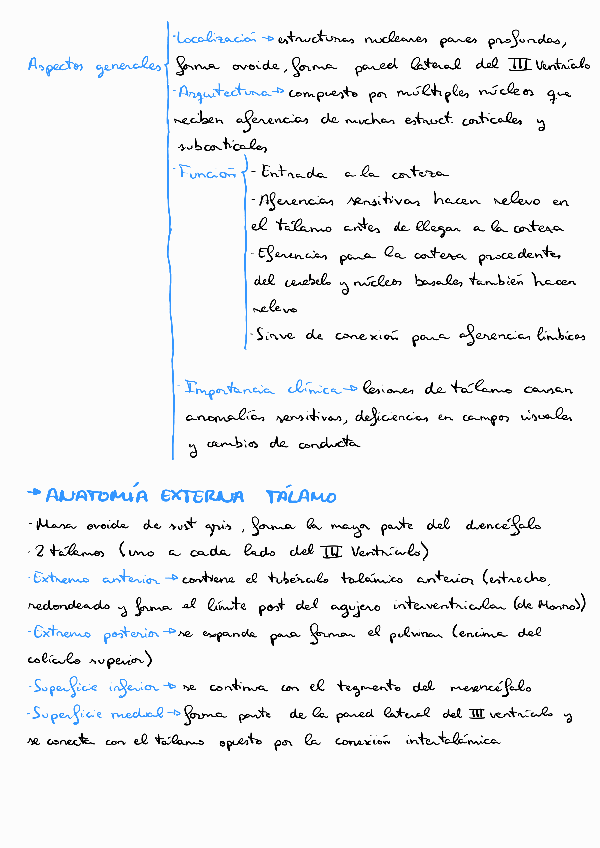 Aspectos generales
· Localización → estructuras nucleares pares profundas,
forma ovoide, forma pared lateral del III Ventrículo
· Arquitectura → compuesto por múltiples núcleos que
reciben aferencias de muchas estruct. corticales y
subcorticales
· Función
- Entrada a la corteza
- Aferencias sensitivas hacen relevo en
el tálamo antes de llegar a la corteza
- Eferencias para la corteza procedentes
del cerebelo y núcleos basales también hacen
relevo
- Sirve de conexión para aferencias límbicas
· Importancia clínica → lesiones de tálamo causan
anomalías sensitivas, deficiencias en campos visuales
y cambios de conducta
→ ANATOMÍA EXTERNA TÁLAMO
· Masa ovoide de sust gris, forma la mayor parte del diencéfalo
· 2 tálamos (uno a cada lado del III Ventrículo)
· Extremo anterior → contiene el tubérculo talámico anterior (estrecho,
redondeado y forma el límite post del agujero interventricular (de Monro))
· Extremo posterior → se expande para formar el pulvinar (encima del
colículo superior)
· Superficie inferior → se continua con el tegmento del mesencéfalo
· Superficie medial → forma parte de la pared lateral del III ventrículo y
se conecta con el tálamo opuesto por la conexión intertalámica